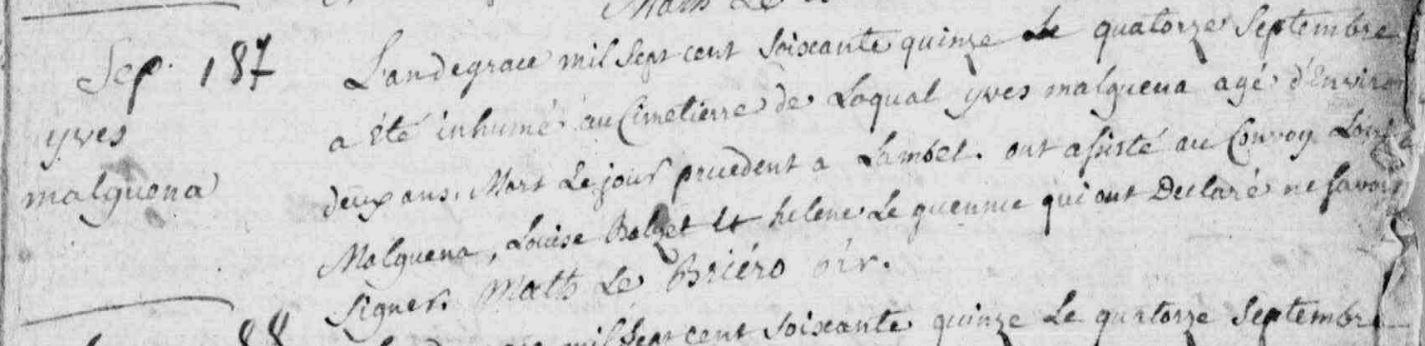 Sep. 187
yves
malguena
L'andegrace mil sept cent soixante quinze le quatorze Septembre
a été inhumé au Cimetierre de Loqual yves malguena agé d'Enviro
deux ans. Mort Le jour precedent a Lambel. ont assisté au Convoy Louis
Malguena, Louise Et helene Le quennec qui ont Declaré ne savoir
signer. Math Le Briéro
mil sept cent soixante quinze Le quatorze Septembre